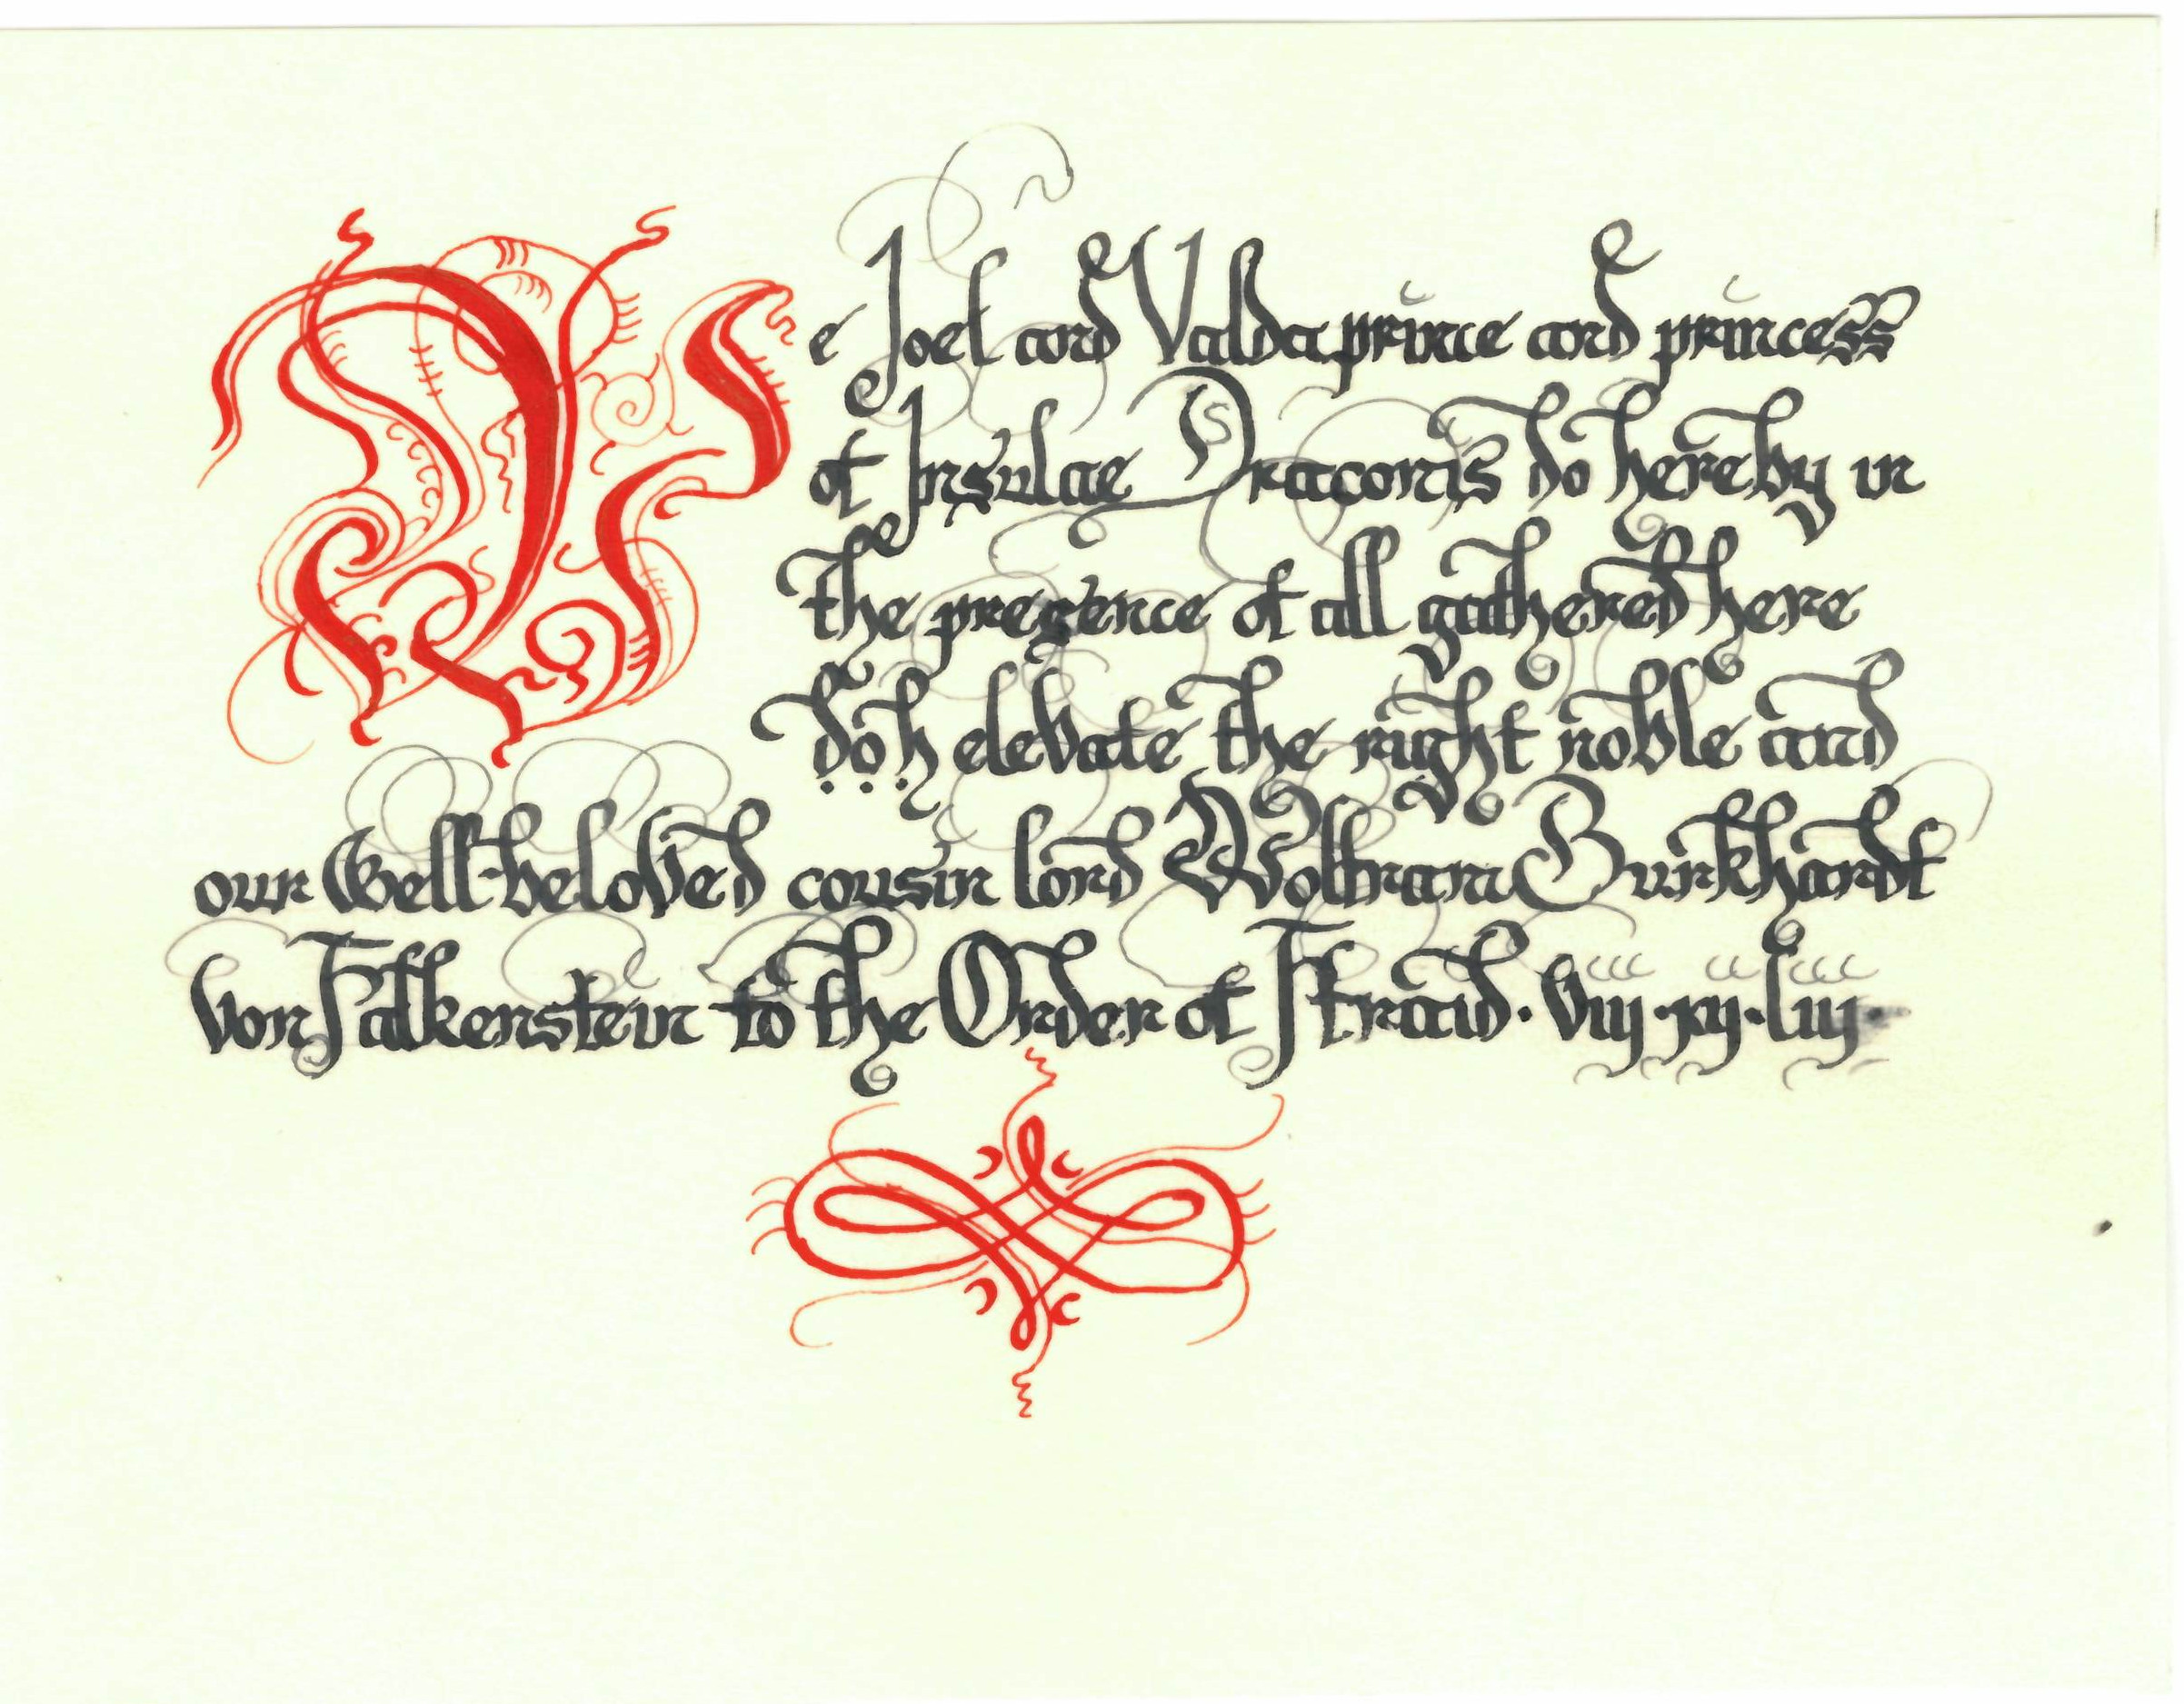 We Joel and Valda prince and princess
of Insulae Draconis do hereby in
the presence of all gathered here
doh elevate the right noble and
our well-beloved cousin lord Wolfram Burkhardt
von Falkenstein to the Order of Ffraid · viij · xij · liij ·